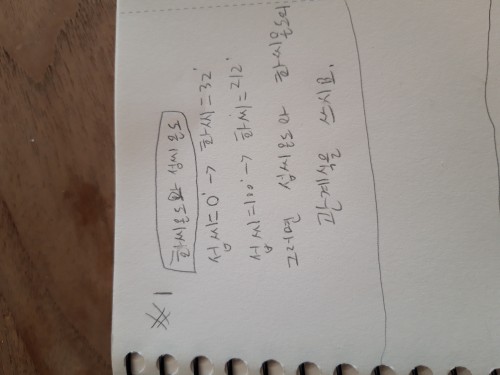 #1
화씨온도와 섭씨온도
섭씨=0° -> 화씨=32°
섭씨=100° -> 화씨=212°
그러면 섭씨온도와 화씨온도의
관계식을 쓰시오.